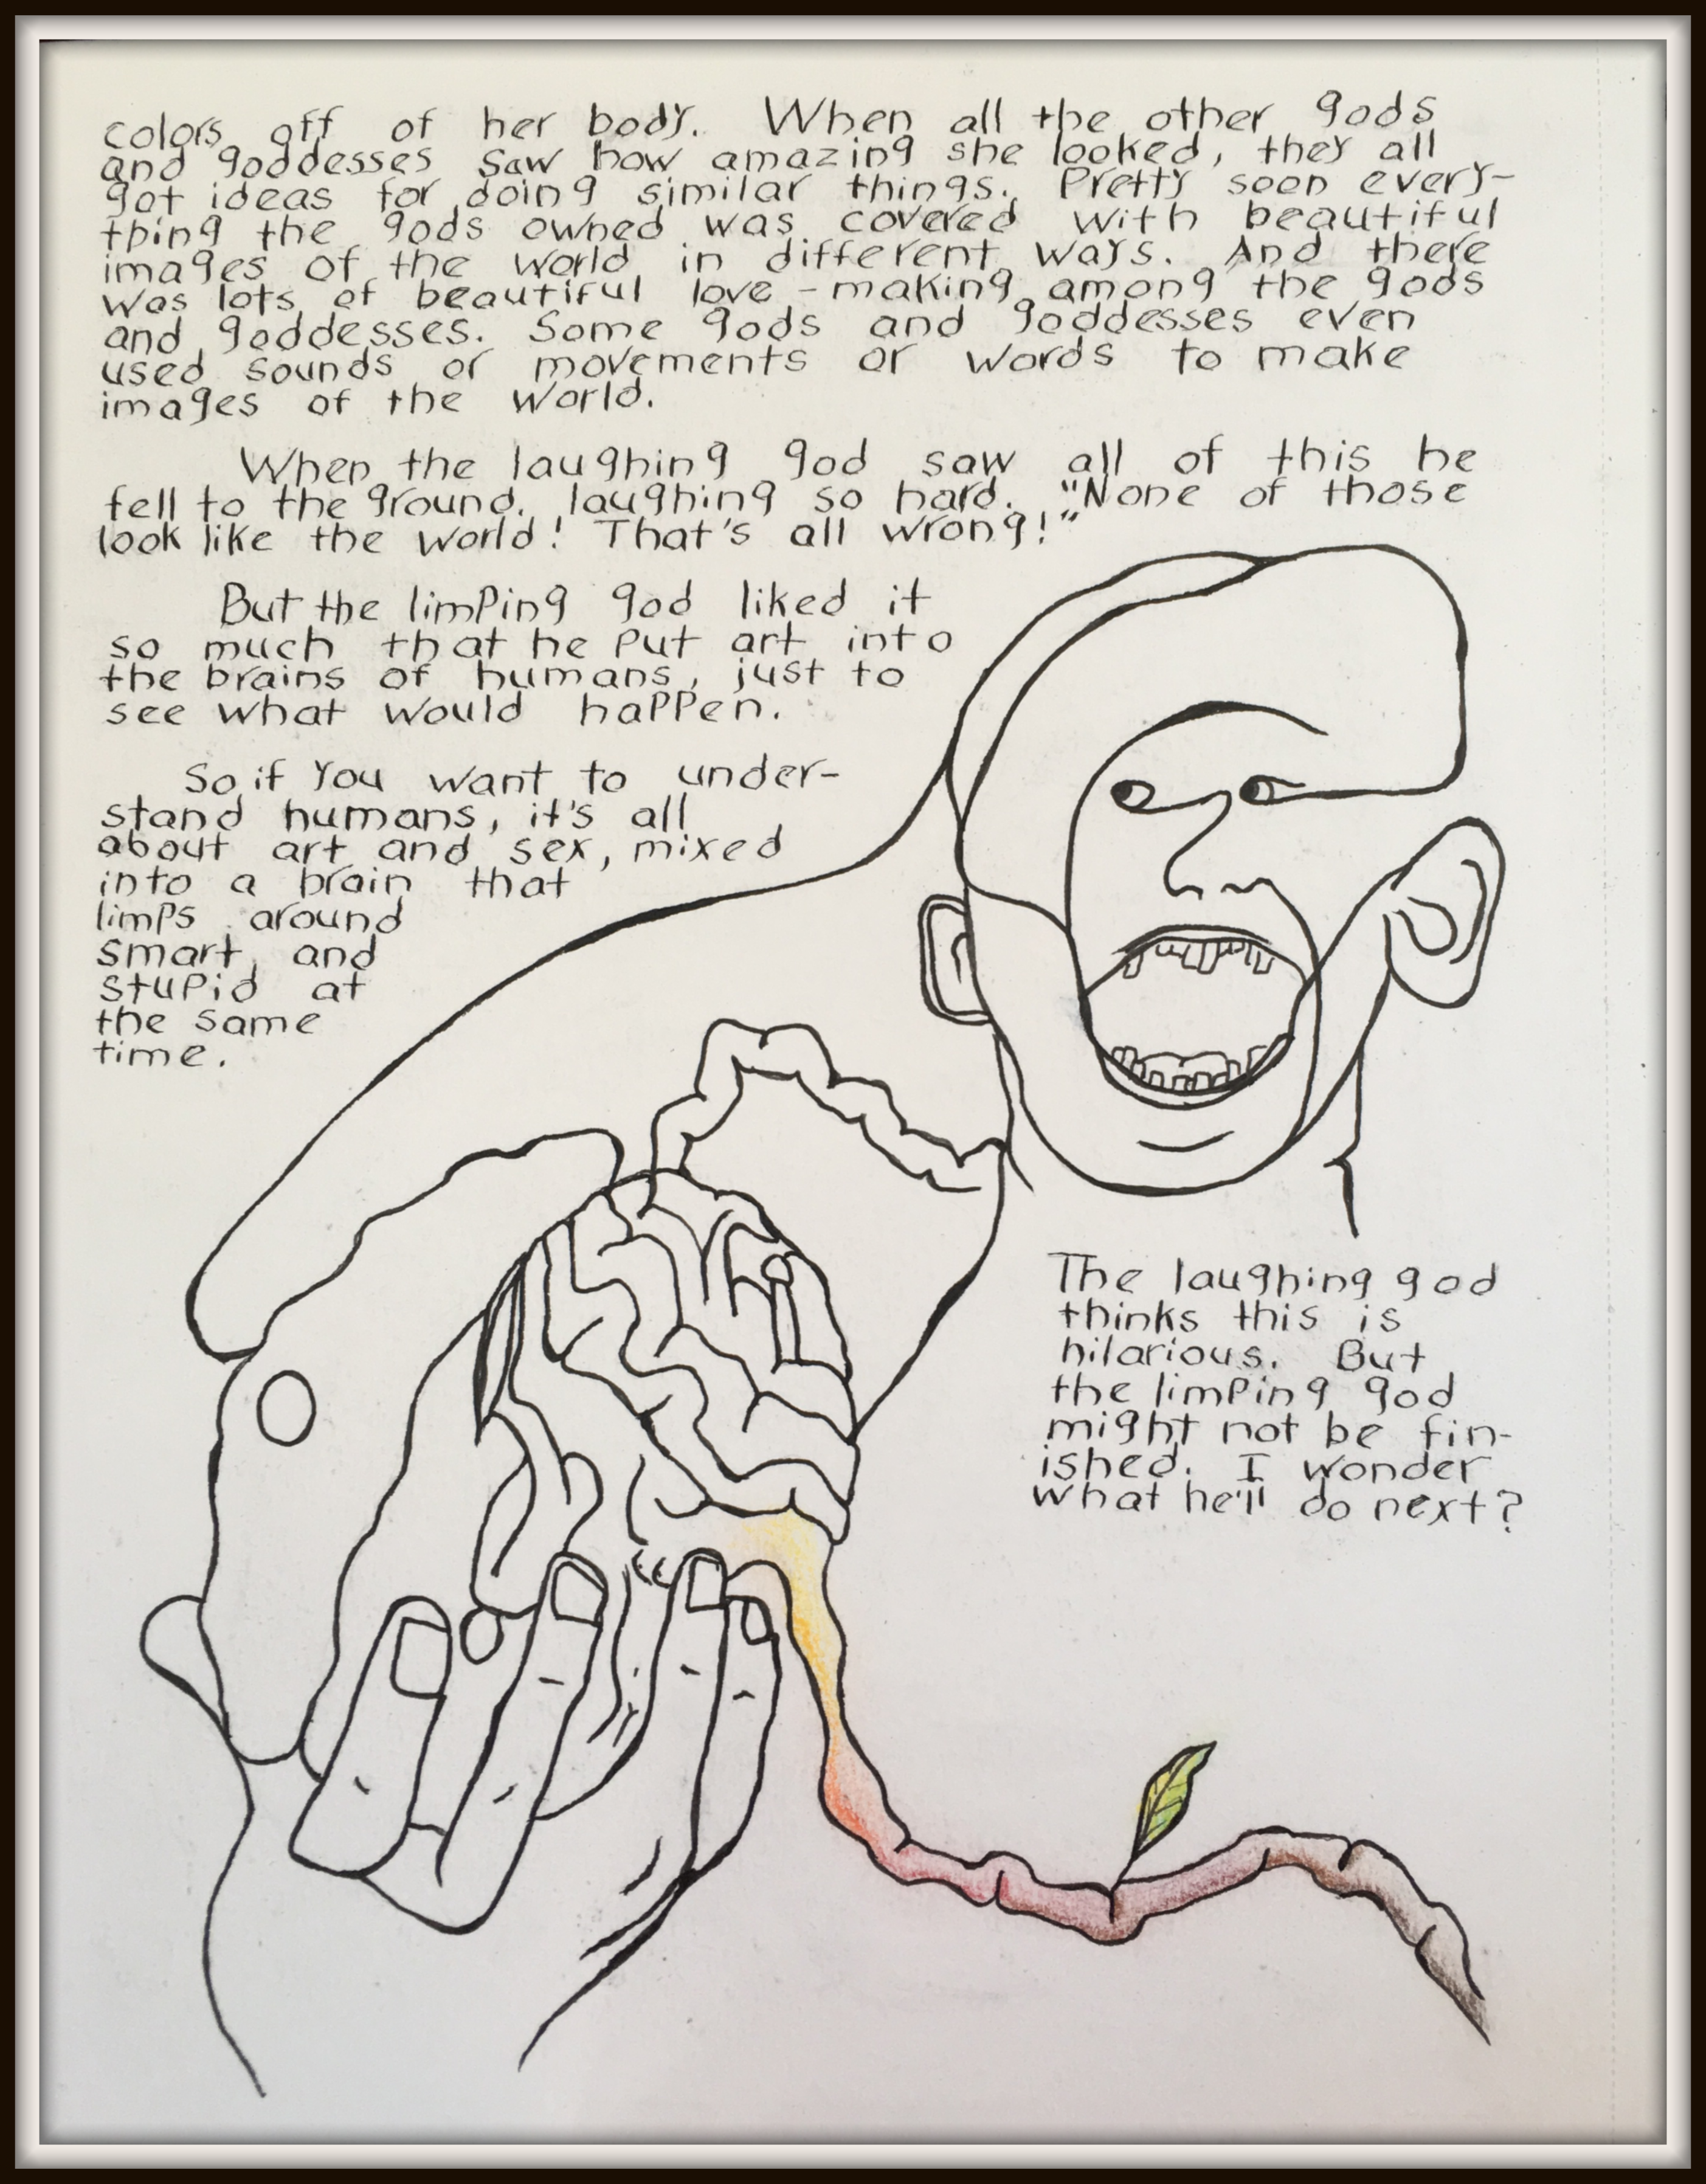 colors off of her body. When all the other gods
and goddesses saw how amazing she looked, they all
got ideas for doing similar things. Pretty soon every-
thing the gods owned was covered with beautiful
images of the world in different ways. And there
was lots of beautiful love-making among the gods
and goddesses. Some gods and goddesses even
used sounds or movements or words to make
images of the world.
When the laughing god saw all of this he
fell to the ground, laughing so hard. "None of those
look like the world! That's all wrong!"
But the limping god liked it
so much that he put art into
the brains of humans, just to
see what would happen.
So if you want to under-
stand humans, it's all
about art and sex, mixed
into a brain that
limps around
smart and
stupid at
the same
time.
The laughing god
thinks this is
hilarious. But
the limping god
might not be fin-
ished. I wonder
what he'll do next?